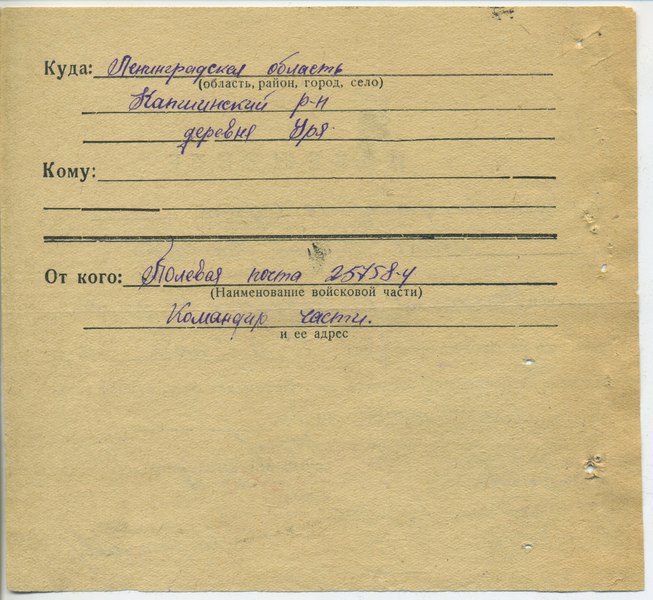 Куда: Ленинградская область
(область, район, город, село)
Капшинский р-н
деревня Уря
Кому:
От кого: Полевая почта 25758-у
(Наименование войсковой части)
Командир части.
и ее адрес